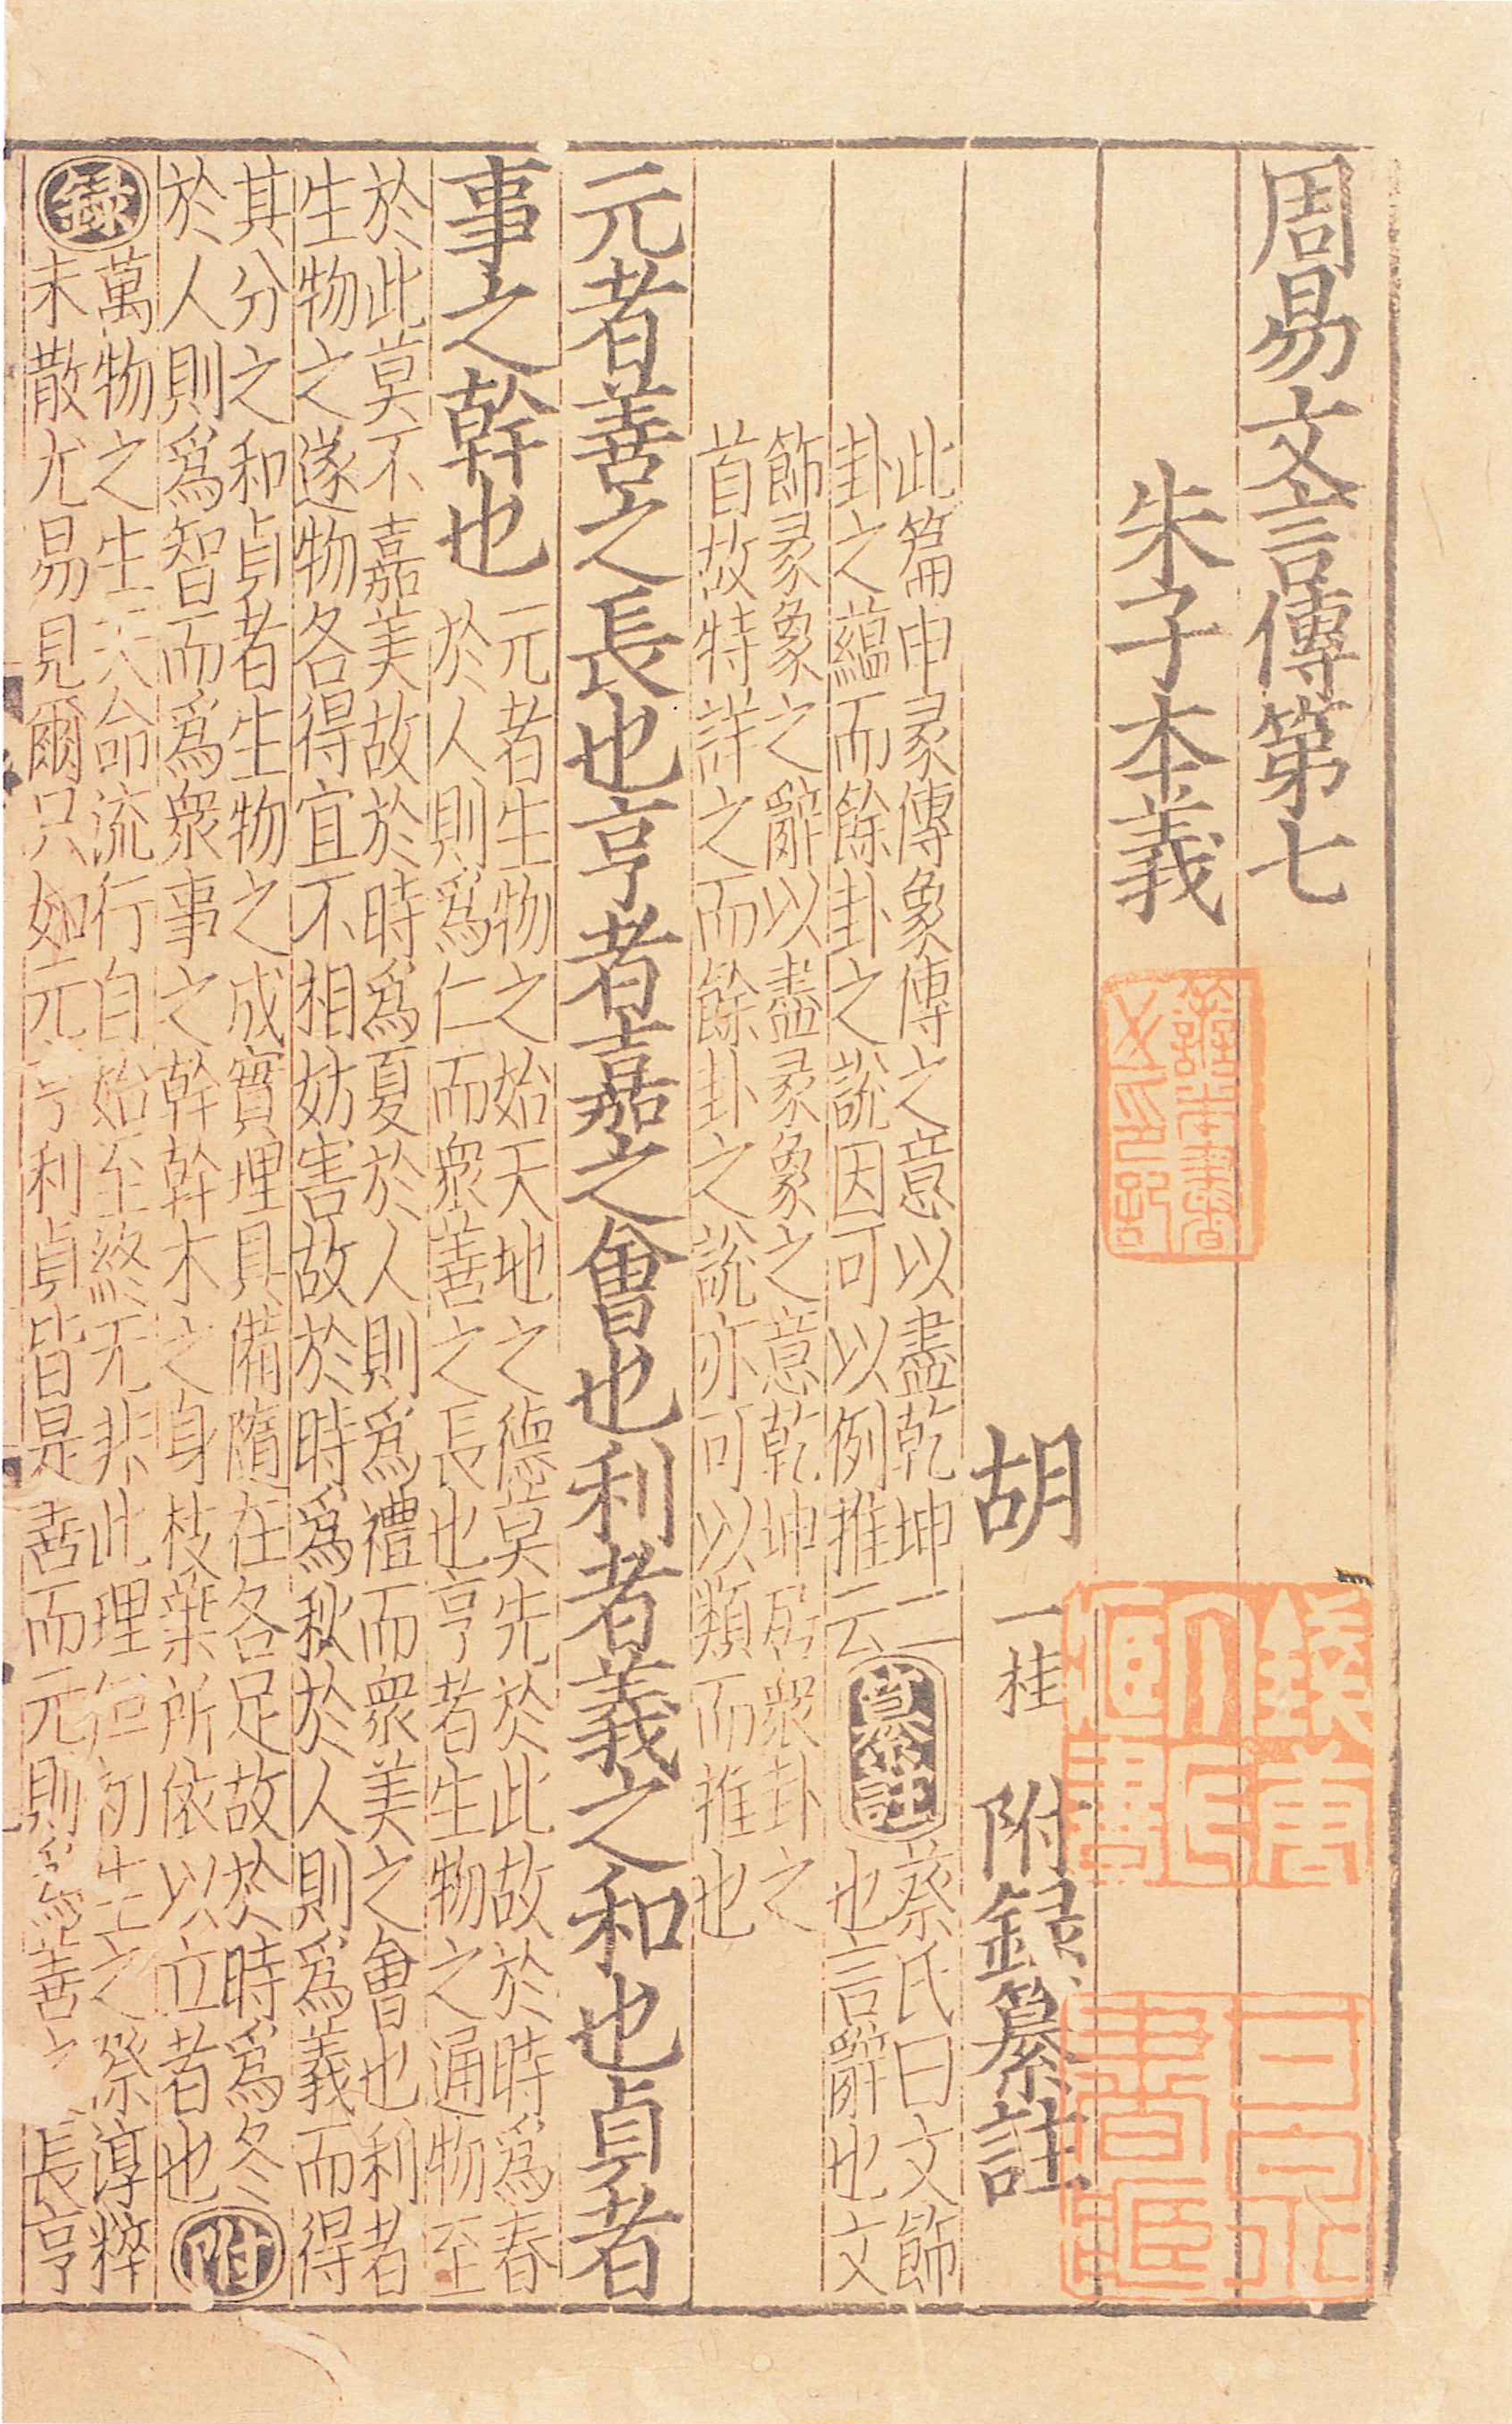 周易文言傳第七
朱子本義
胡一桂附錄纂註
此篇申彖傳象傳之意以盡乾坤二
卦之蘊而餘卦之說因可以例推云
纂註
蔡氏曰文飾
也言辭也文
飾彖象之辭以盡彖象之意乾坤居衆卦之
首故特詳之而餘卦之說亦可以類而推也
元者善之長也亨者嘉之會也利者義之和也貞者
事之幹也
元者生物之始天地之德莫先於此故於時爲春
於人則爲仁而衆善之長也亨者生物之通物至
於此莫不嘉美故於時爲夏於人則爲禮而衆美之會也利者
生物之遂物各得宜不相妨害故於時爲秋於人則爲義而得
其分之和貞者生物之成實理具備隨在各足故於時爲冬
於人則爲智而爲衆事之幹幹木之身枝葉所依以立者也
附
錄
萬物之生天命流行自始至終无非此理但初生之際淳粹
未散尤易見爾只如元亨利貞皆是善而元則爲善之長亨